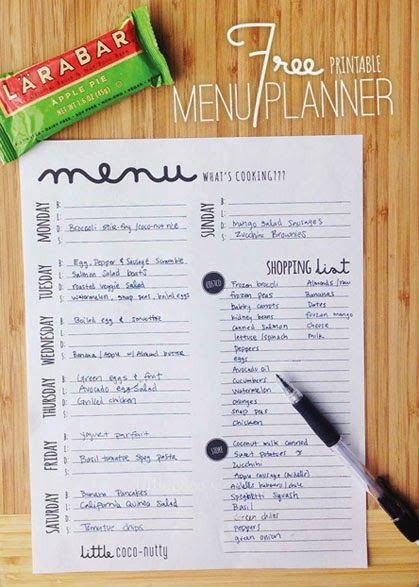 LÄRABAR
APPLE PIE
NET WT 1.6 OZ (45g)
Free PRINTABLE
MENU PLANNER
menu WHAT'S COOKING???
MONDAY
B:
L:
D: Broccoli stir-fry /coco-nut rice
S:
TUESDAY
B: Egg, Pepper & Sausage Scramble
L: Salmon Salad boats
D: roasted veggie salad
S: watermelon, snap peas, boiled eggs
WEDNESDAY
B: Boiled egg & smoothie
L:
D:
S: Banana / Apple w/ Almond butter
THURSDAY
B: Green eggs & fruit
L: Avocado egg Salad
D: Grilled chicken
S:
FRIDAY
B: Yogurt parfait
L:
D: Basil tomatoe Spag pasta
S:
SATURDAY
B: Banana Pancakes
L: California Quinoa Salad
D:
S: Tomatoe chips
SUNDAY
B:
L:
D: Mango Salad Sausages
S: Zucchini Brownies
SHOPPING list
COSTCO
Frozen brocoli
frozen peas
babby carrots
kidney beans
canned salmon
lettuce/spinach
Peppers
eggs
Avocado oil
Cucumbers
Watermelon
Oranges
snap peas
Chicken
Almonds / raw
Bananas
Dates
frozen mango
Cheese
milk
STORE
Coconut milk canned
Sweet Potatoes
Zucchini
Apple sausage (Aidells)
Spaghetti Squash
Basil
Green chiles
peppers
green onion
little coco-nutty